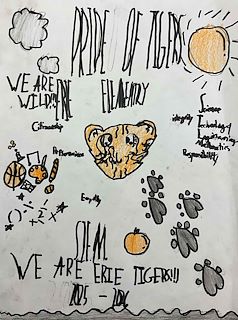 PRIDE OF TIGERS
WE ARE
WILD!!!
ERIE ELEMENTARY
Citizenship
Integrity
Science
Technology
Engineering
Mathematics
Responsibility
Perseverance
Equality
WE ARE ERIE TIGERS!!!
2025 - 2026